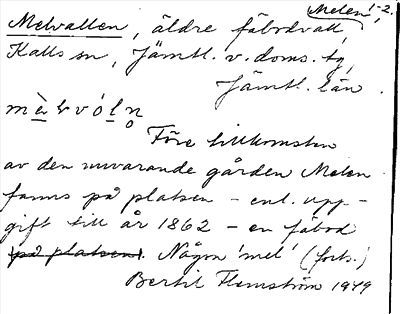 Melen 1-2.
Melvallen, äldre fäbodvall,
Kalls sn, Jämtl. v. doms. tg,
Jämtl. län.
Före tillkomsten
av den nuvarande gården Melen
fanns på platsen - enl. upp-
gift till år 1862 - en fäbod
(på platsen). Någon 'mel' (forts.)
Bertil Flemström 1949